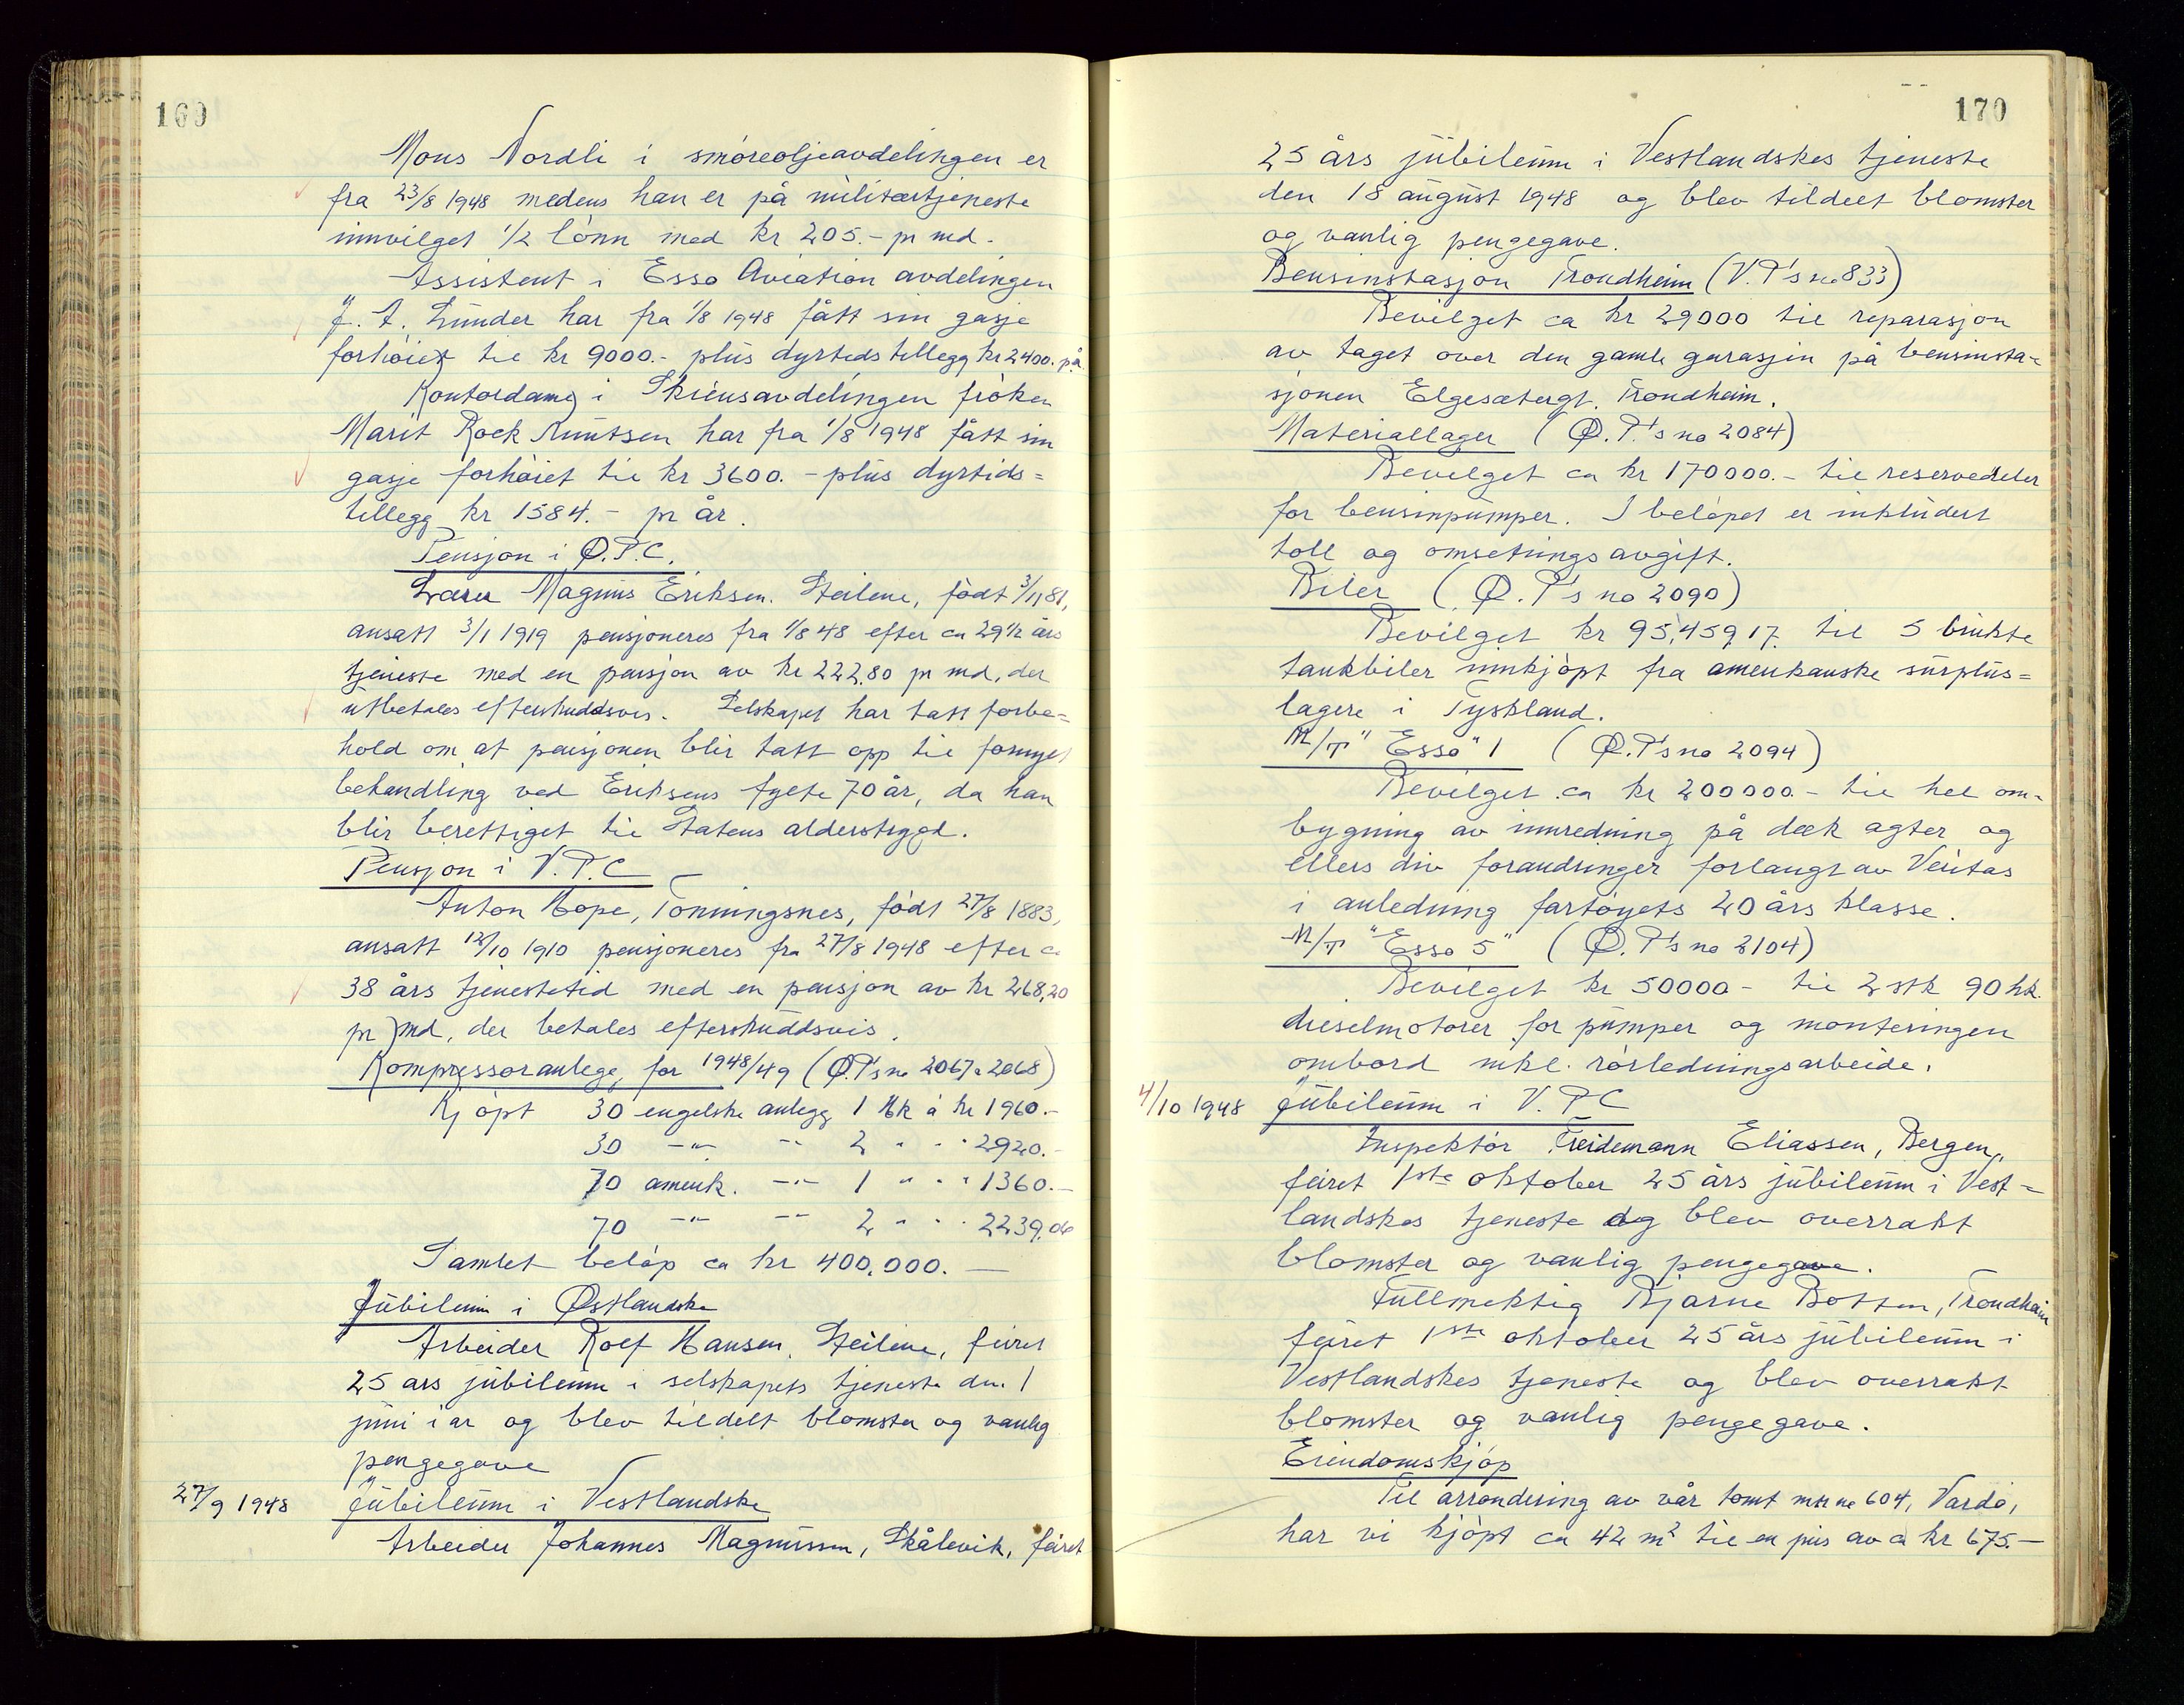 169
Mons Nordli i smöreoljeavdelingen er
fra 23/8 1948 medens han er på militærtjeneste
innvilget 1/2 lönn med kr 205.- pr md.
Assistent i Esso Aviation avdelingen
J. A. Lunder har fra 1/8 1948 fått sin gasje
forhöiet til kr 9000.- plus dyrtidstillegg kr 2400. p.å.
Kontordame i Skiensavdelingen fröken
Marit Rock Knutsen har fra 1/8 1948 fått sin
gasje forhöiet til kr 3600.- plus dyrtids=
tillegg kr 1584.- pr år.
Pensjon i Ø.P.C.
Magnus Eriksen. Steilene, födt 3/11 81,
ansatt 3/1 1919 pensjoneres fra 1/8 48 efter ca 29 1/2 års
tjeneste med en pensjon av kr 222.80 pr md. der
utbetales efterskuddsvis. Selskapet har tatt forbe=
hold om at pensjonen blir tatt opp til fornyet
behandling ved Eriksens fylte 70 år, da han
blir berettiget til Statens alderstrygd.
Pensjon i V.P.C
Anton Hope, Tonningsnes, födt 27/8 1883,
ansatt 12/10 1910 pensjoneres fra 27/8 1948 efter ca
38 års tjenestetid med en pensjon av kr 268,20
pr md, der betales efterskuddsvis.
Kompressoranlegg for 1948/49 (Ø.P's no 2067 a 2068)
Kjöpt 30 engelske anlegg 1 Hk á kr 1960.-
30 -"- -"- 2 " " " 2920.-
70 amerik. -"- 1 " " " 1360.-
70 -"- -"- 2 " " " 2239.06
Samlet belöp ca kr 400.000.-
Jubileum i Østlandske
Arbeider Rolf Hansen, Steilene, feiret
25 års jubileum i selskapets tjeneste den 1
juni i år og blev tildelt blomster og vanlig
pengegave
27/9 1948 Jubileum i Vestlandske
Arbeider Johannes Magnussen, Skålevik, feiret
170
25 års jubileum i Vestlandskes tjeneste
den 18 august 1948 og blev tildelt blomster
og vanlig pengegave.
Bensinstasjon Trondheim (V.P's no 833)
Bevilget ca kr 29000 til reparasjon
av taget over den gamle garasjen på bensinsta=
sjonen Elgesætergt. Trondheim.
Materiallager (Ø.P.'s no 2084)
Bevilget ca kr 170000.- til reservedeler
for bensinpumper. I belöpet er inkludert
toll og omsetningsavgift.
Biler (Ø.P's no 2090)
Bevilget kr 95,459,17 til 5 brukte
tankbiler innkjöpt fra amerikanske surplus=
lagere i Tyskland.
M/T "Esso" 1 (Ø.P's no 2094)
Bevilget ca kr 200000.- til hel om=
bygning av innredning på dæk agter og
ellers div forandringer forlangt av Veritas
i anledning fartöyets 20 års klasse.
M/T "Esso 5" (Ø.P's no 2104)
Bevilget kr 50000- til 2 stk 90 hk.
dieselmotorer for pumper og monteringen
ombord inkl. rörledningsarbeide.
4/10 1948 Jubileum i V.P.C
Inspektör Treidemann Eliassen, Bergen,
feiret 1ste oktober 25 års jubileum i Vest=
landskes tjeneste og blev overrakt
blomster og vanlig pengegave.
Fullmektig Bjarne Botten, Trondheim
feiret 1ste oktober 25 års jubileum i
Vestlandskes tjeneste og blev overrakt
blomster og vanlig pengegave.
Eiendomskjöp
Til arrondering av vår tomt mtr no 604, Vardö,
har vi kjöpt ca 42 m² til en pris av ca kr 675.-